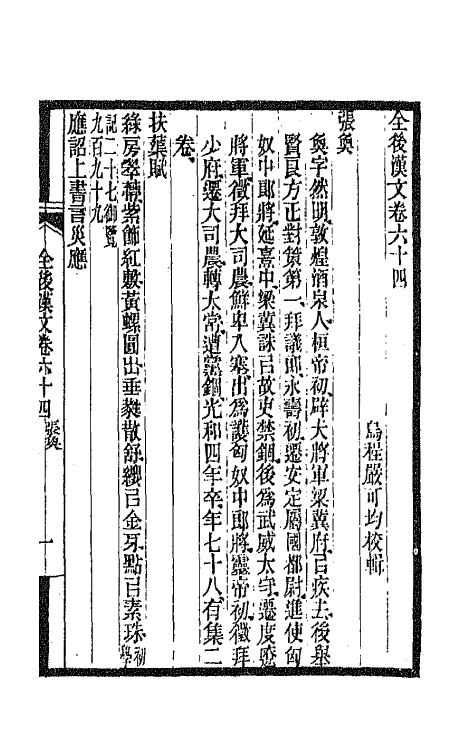 全後漢文卷六十四
烏程嚴可均校輯
張奐
奐字然明敦煌酒泉人桓帝初辟大將軍梁冀府㠯疾去後舉
賢良方正對策第一拜議郎永壽初遷安定屬國都尉進使匈
奴中郎將延熹中梁冀誅㠯故吏禁錮後爲武威太守遷度遼
將軍徵拜大司農鮮卑入塞出爲護匈奴中郎將靈帝初徵拜
少府遷大司農轉太常遭黨錮光和四年卒年七十八有集二
卷
扶蕖賦
綠房翠蔕紫飾紅敷黃螺圓出垂蕤散舒纓㠯金牙點㠯素珠初學
記二十七御覽
九百九十九
應詔上書言災應
全後漢文卷六十四 張奐 一